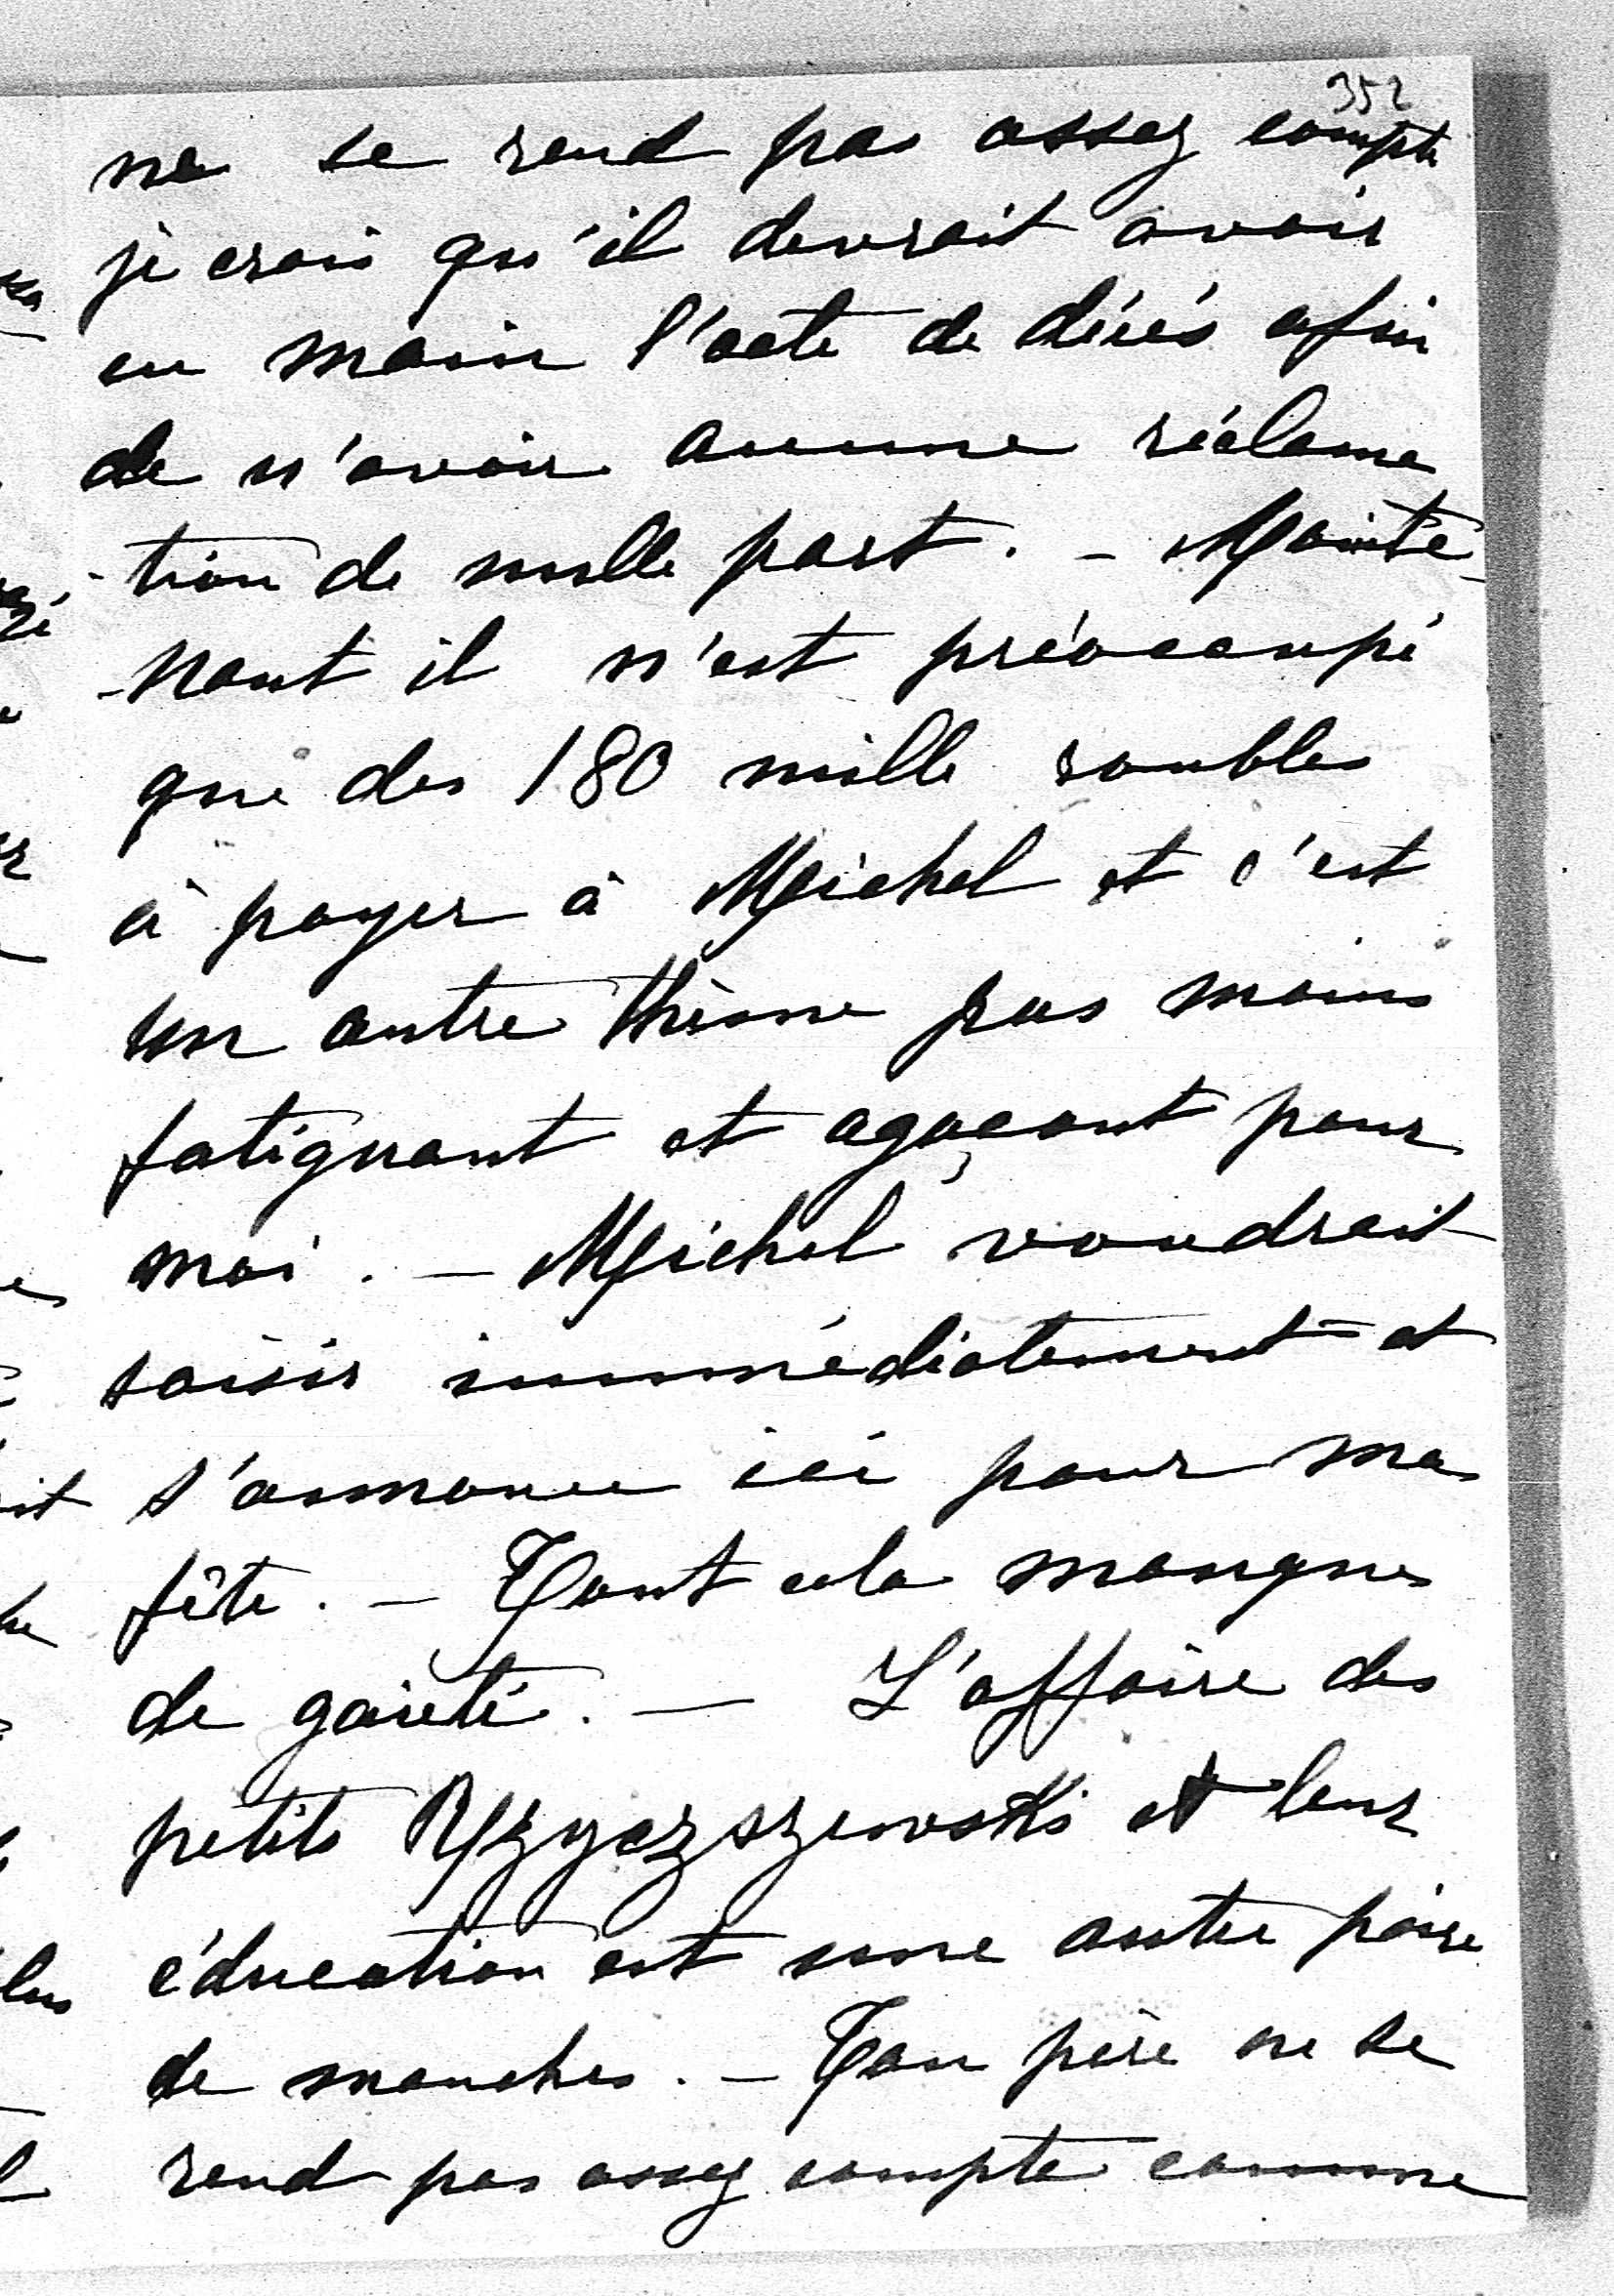 352
ne se rend pas assez compte
je crois qu'il devrait avoir
en main l'acte de décès afin
de n'avoir aucune réclama
-tion de nulle part. - Mainte-
-nant il n'est préoccupé
que des 180 mille roubles
à payer à Michel et c'est
un autre thème pas moins
fatiguant et agaçant pour
moi. - Michel voudrait
saisir immédiatement et
s'annonce ici pour ma
fête. - Tout cela manque
de gaieté. - L'affaire des
petits et leur
éducation est une autre paire
de manches. - Ton père ne se
rend pas assez compte comme